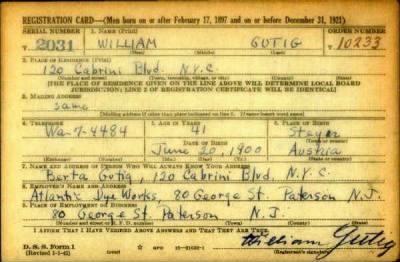 REGISTRATION CARD—(Men born on or after February 17, 1897 and on or before December 31, 1921)
SERIAL NUMBER 1. NAME (Print) ORDER NUMBER
T 2031 WILLIAM GUTIG T 10233
(First) (Middle) (Last)
2. PLACE OF RESIDENCE (Print)
120 Cabrini Blvd. N.Y.C.
(Number and street) (Town, township, village, or city) (County) (State)
[THE PLACE OF RESIDENCE GIVEN ON THE LINE ABOVE WILL DETERMINE LOCAL BOARD
JURISDICTION; LINE 2 OF REGISTRATION CERTIFICATE WILL BE IDENTICAL]
3. MAILING ADDRESS
Same
(Mailing address if other than place indicated on line 2. If same insert word same)
4. TELEPHONE 5. AGE IN YEARS 6. PLACE OF BIRTH
Wa-7-4484 41 Steyer
DATE OF BIRTH
June 20 1900 Austria
(Exchange) (Number) (Mo.) (Day) (Yr.) (State or country)
7. NAME AND ADDRESS OF PERSON WHO WILL ALWAYS KNOW YOUR ADDRESS
Berta Gutig, 120 Cabrini Blvd. N.Y.C.
8. EMPLOYER'S NAME AND ADDRESS
Atlantic Dye Works, 80 George St. Paterson N.J.
9. PLACE OF EMPLOYMENT OR BUSINESS
80 George St. Paterson N.J.
(Number and street or R. F. D. number) (Town) (County) (State)
I AFFIRM THAT I HAVE VERIFIED ABOVE ANSWERS AND THAT THEY ARE TRUE.
D. S. S. Form 1
(Revised 1-1-42) (over)
William Gutig
(Registrant's signature)